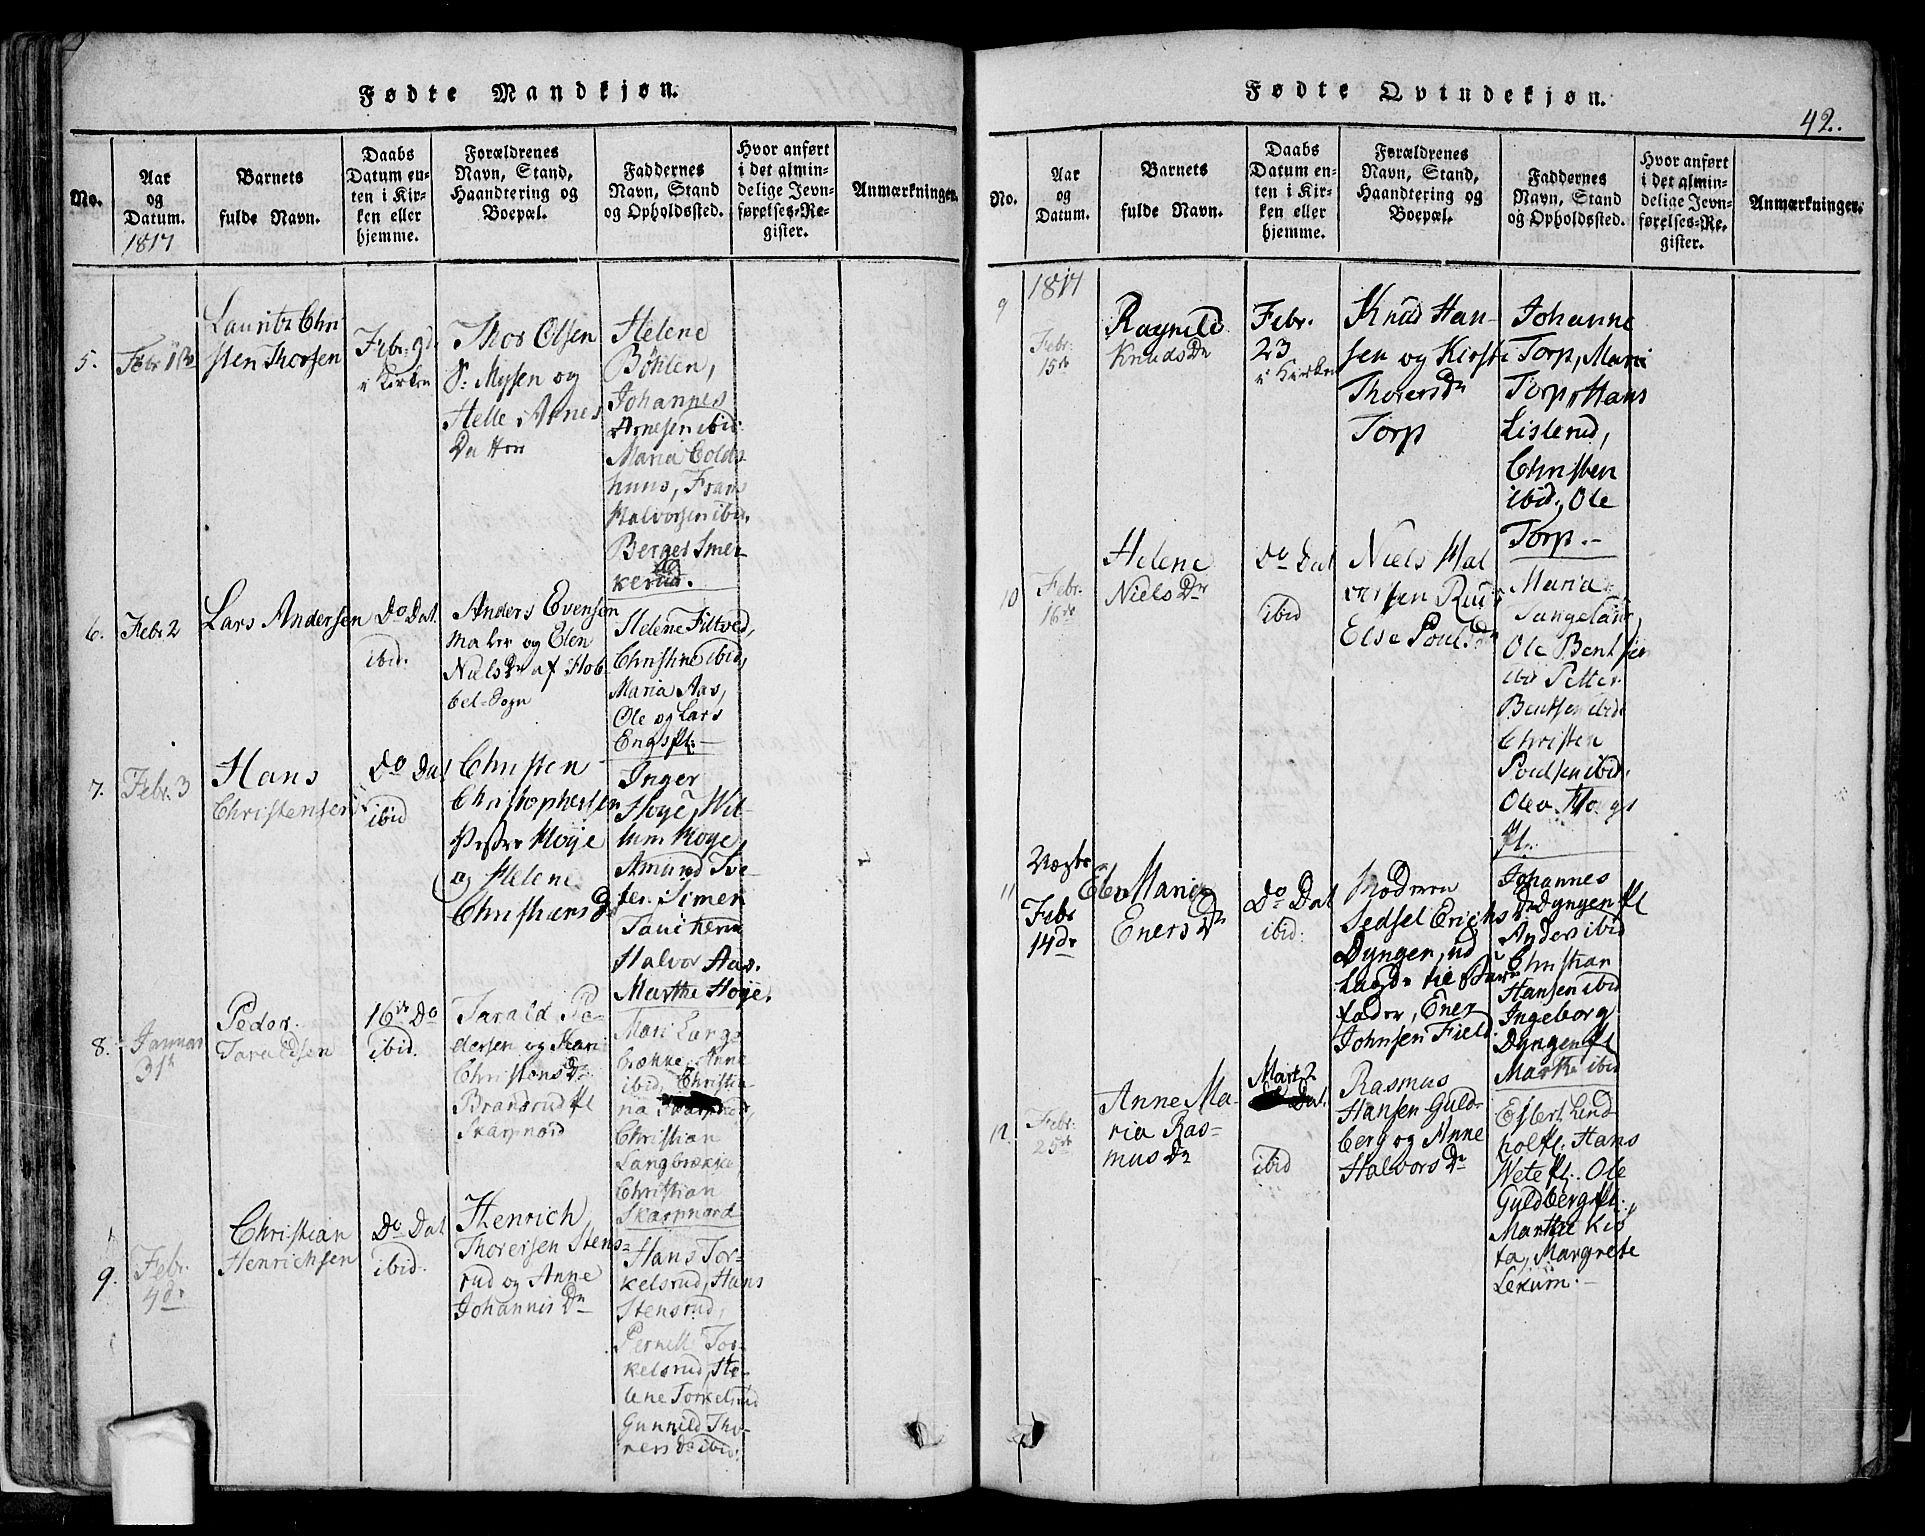 Fødte Mandkjøn.
No.
Aar
og
Datum.
1817
Barnets
fulde Navn.
Daabs
Datum en-
ten i Kir-
ken eller
hjemme.
Forældrenes
Navn, Stand,
Haandtering og
Boepæl.
Faddernes
Navn, Stand
og Opholdssted.
Hvor anført
i det almin-
delige Jevn-
førelses-Re-
gister.
Anmærkninger.
5.
Febr 1
Lauritz Chri
sten Thorsen
Febr: 9d
i Kirken
Thor Olsen
S: Mysen og
Helle Arnes
Datter
Helene
Böhlen,
Johannes
Arnesen ibid.
Maria Colds-
huus, Frans
Halvorsen ibid.
Berger Smer-
kerud.
6.
Febr 2
Lars Andersen
Do Dat.
ibid.
Anders Evensen
Maler og Elen
Niels Dr af Hob
bel-Sogn
Helene Filtved,
Christine ibid,
Maria Aas,
Ole og Lars
Engs pl.
7.
Febr. 3
Hans
Christensen
Do Dat
ibid
Christen
Christophersen
Høije
og Helene
Christians D
Inger
Hoye, Wil-
lum Hoye,
Amund Tve-
ter. Simen
Halvor Aas.
Marthe Hoye.
8.
Januar
31te
Peder
Taraldsen
16de Do
ibid.
Tarald Pe-
dersen og Kari
Christens Dr
Brandsrud pl
Skarpnord
Mari Lang-
brække, Anne
ibid, Christia-
na
Christian
Langbrække
Christian
Skarpnord
9.
Febr.
4de
Christian
Henrichsen
Do Dat
ibid.
Henrich
Thorersen Stens-
rud og Anne
Johannis Dr
Hans Tor-
kelsrud, Hans
Stensrud,
Pernell Tor-
kelsrud, He-
lene Torkelsrud
Gunnild Tho-
rers Dr ibid.
Fødte Qvindekjøn.
42.
No.
Aar
og
Datum.
Barnets
fulde Navn.
Daabs
Datum en-
ten i Kir-
ken eller
hjemme.
Forældrenes
Navn, Stand,
Haandtering og
Boepæl.
Faddernes
Navn, Stand
og Opholdssted.
Hvor anført
i det almin-
delige Jevn-
førelses-Re-
gister.
Anmærkninger.
1817
9
Febr.
15de
Ragnild
Knuds Dr
Febr.
23
i Kirken
Knud Han-
sen og Kirsti
Thorers Dr
Torp
Johanne
Torp, Mari
Torp, Hans
Lislerud,
Christen
ibid, Ole
Torp.
10
Febr.
16de
Helene
Niels Dr
Do Dat
ibid
Niels Hal
vorsen Ruu
Else Pouls Dr
Maria
Ole Bentsen
ibid Petter
Bentsen ibid
Christen
Poulsen ibid.
pl.
11
Uægte
Febr
14de
Elen Marie
Eners Dr
Do Dat
ibid.
Moderen
Sedsel Erichs Dr
Dyngen, ud
lagde til Barne
fader, Ener
Johnsen Field.
Johannes
Dyngen pl
Anders ibid
Christian
Hansen ibid
Ingeborg
Dyngen pl
Marthe ibid
12.
Febr:
25de
Anne Ma-
ria Ras-
mus Dr
Mart. 2
Dat.
ibid
Rasmus
Hansen Guld-
berg og Anne
Halvors Dr
Hans
Ole
Guldberg pl.
Marthe
Margrete
Lekum.